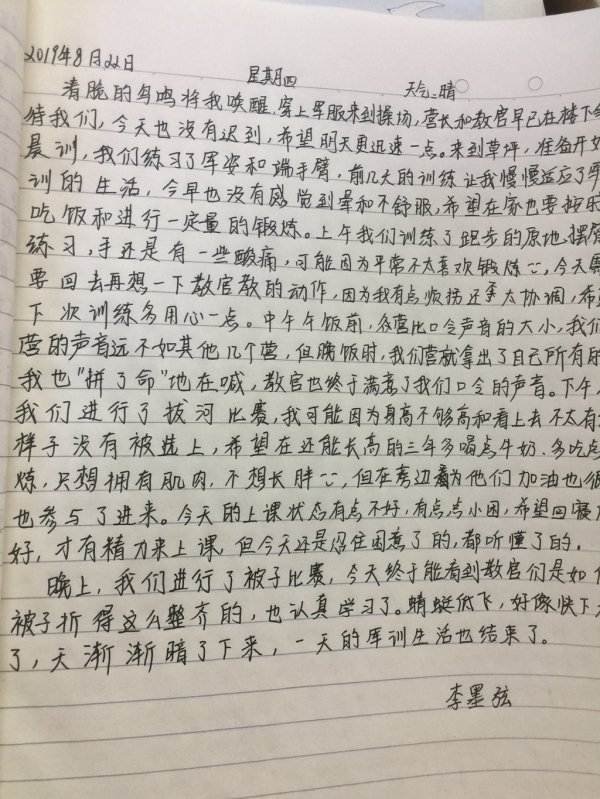 2019年8月22日 星期四 天气:晴
清脆的鸟鸣将我唤醒,穿上军服来到操场,营长和教官早已在楼下等
待我们,今天也没有迟到,希望明天更迅速一点。来到草坪,准备开始
晨训,我们练习了军姿和端手臂,前几天的训练让我慢慢适应了军
训的生活,今早也没有感觉到晕和不舒服,希望在家也要按时
吃饭和进行一定量的锻炼。上午我们训练了跑步的原地摆臂
练习,手还是有一些酸痛,可能因为平常不太喜欢锻炼,今天
要回去再想一下教官教的动作,因为我有点顺拐还不太协调,希
下次训练多用心一点。中午午饭前,各营比口令声音的大小,我们
营的声音远不如其他几个营,但晚饭时,我们营就拿出了自己所有的
我也"拼了命"地在喊,教官也终于满意了我们口令的声音。下午,
我们进行了拔河比赛,我可能因为身高不够高和看上去不太有
样子没有被选上,希望在还能长高的三年多喝点牛奶、多吃点
炼,只想拥有肌肉,不想长胖,但在旁边为他们加油也很
也参与了进来。今天的上课状态有点不好,有点点小困,希望回寝
好,才有精力来上课,但今天还是忍住困意了的,都听懂了的。
晚上,我们进行了被子比赛,今天终于能看到教官们是如
被子折得这么整齐的,也认真学习了。蜻蜓低飞,好像快下
了,天渐渐暗了下来,一天的军训生活也结束了。
李墨弦